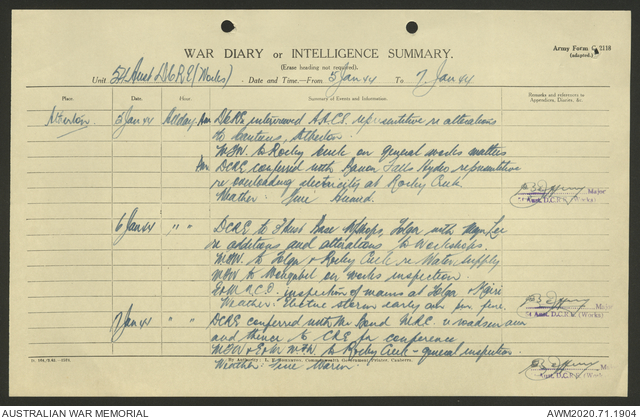 Army Form C. 2118
(adapted)
WAR DIARY or INTELLIGENCE SUMMARY.
(Erase heading not required).
Unit 54 Aust DCRE (Works). Date and Time—From 5 Jan 44 To 7 Jan 44
Place. Date Summary of Events and Information. Remarks and references to
Appendices, Diaries, &c
Atherton 5 Jan 44 All day DCRE interviewed A.A.C.S. representative re alterations
to Canteens, Atherton.
MFW to Rocky Creek on general works matters
DCRE conferred with Barron Falls Hydro representative
re overloading electricity at Rocky Creek
Weather: Fine Humid.
Major
54 Aust. D.C.R.E. (Works)
6 Jan 44 " " DCRE to 1 Aust Base Wkshops, Tolga with
re additions and alterations to Workshops.
MFW to Tolga & Rocky Creek re Water Supply
MFW to on works inspection.
inspection of mains at Tolga & Kairi
Weather: Electric storm early am fine.
Major
54 Aust. D.C.R.E. (Works)
7 Jan 44 " " DCRE conferred with the Band re
and thence to CRE for conference
MFW & E&M MFW to Rocky Creek - general inspection.
Weather: Fine Warm.
Aust. D.C.R.E. (Works)
By Authority: L. F. Johnston, Commonwealth Government Printer, Canberra.
AUSTRALIAN WAR MEMORIAL
AWM2020.71.1904